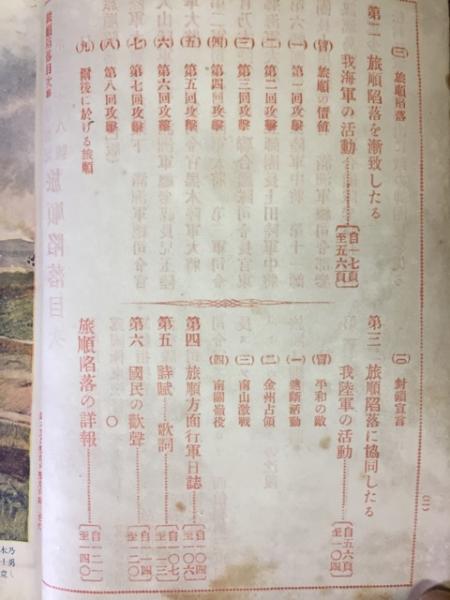 (三) 旅順陷落
第二 旅順陷落を漸致したる
我海軍の活動………〔自一七頁至五六頁〕
(冒) 旅順の價値
(一) 第一回攻擊
(二) 第二回攻擊
(三) 第三回攻擊
(四) 第四回攻擊
(五) 第五回攻擊
(六) 第六回攻擊
(七) 第七回攻擊
(八) 第八回攻擊
(九) 爾後に於ける旅順
(二) 封鎖宣言
第三 旅順陷落に協同したる
我陸軍の活動………〔自五六頁至一〇四〕
(冒) 平和の敵
(一) 活動
(二) 金州占領
(三) 南山激戰
(四) 南關嶺役
第四 旅順方面行軍日誌……〔自一〇四至一〇六〕
第五 詩賦……歌詞………〔自一〇七至一一三〕
第六 國民の歡聲………〔自一一四至一二〇〕
〇
旅順陷落の詳報………〔自一二一至一四〇〕
旅順陷落目次
(二)